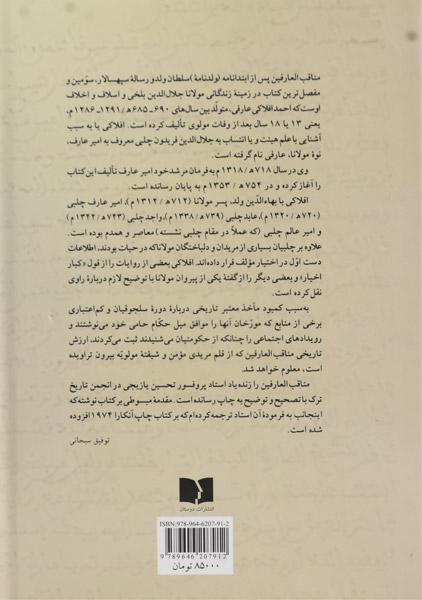 مناقب العارفین پس از ابتدانامه (ولدنامه) سلطان ولد و رسالهٔ سپهسالار، سوّمین و
مفصل‌ترین کتاب در زمینهٔ زندگانی مولانا جلال‌الدین بلخی و اسلاف و اخلاف
اوست که احمد افلاکی عارفی، متولّد بین سال‌های ۶۹۰ـ۶۸۵ه‍/۱۲۹۱ـ۱۲۸۶م،
یعنی ۱۳ یا ۱۸ سال بعد از وفات مولوی تألیف کرده است. افلاکی یا به سبب
آشنایی با علم هیئت و یا انتساب به جلال‌الدین فریدون چلبی معروف به امیر عارف،
نوهٔ مولانا، عارفی نام گرفته است.
وی در سال ۷۱۸ه‍/ ۱۳۱۸م به فرمان مرشد خود امیر عارف تألیف این کتاب
را آغاز کرده و در ۷۵۴ه‍/ ۱۳۵۳م به پایان رسانده است.
افلاکی با بهاءالدّین ولد، پسر مولانا (۷۱۲ه‍/ ۱۳۱۲م)، امیر عارف چلبی
(۷۲۰ه‍/ ۱۳۲۰م)، عابد چلبی (۷۳۹ه‍/ ۱۳۳۸م)، واجد چلبی (۷۴۳ه‍/ ۱۳۴۲م)
و امیر عالم چلبی (که عملاً در مقام چلبی نشسته) معاصر و همدم بوده است.
علاوه بر چلبیان بسیاری از مریدان و دلباختگان مولانا که در حیات بودند، اطلاعات
دست اوّل در اختیار مؤلف قرار داده‌اند. افلاکی بعضی از روایات را از قول «کبار
اخیار» و بعضی دیگر را از گفتهٔ یکی از پیروان مولانا با توضیح لازم دربارهٔ راوی
نقل کرده است.
به‌سبب کمبود مآخذ معتبر تاریخی دربارهٔ دورهٔ سلجوقیان و کم‌اعتباری
برخی از منابع که مورّخان آنها را موافق میل حکّام حامی خود می‌نوشتند و
رویدادهای اجتماعی را چنانکه از حکومتیان می‌شنیدند ثبت می‌کردند، ارزش
تاریخی مناقب العارفین که از قلم مریدی مؤمن و شیفتهٔ مولویّه بیرون تراویده
است، معلوم خواهد شد.
مناقب العارفین را زنده یاد استاد پروفسور تحسین یازیجی در انجمن تاریخ
ترک با تصحیح و توضیح به چاپ رسانده است. مقدمهٔ مبسوطی بر کتاب نوشته که
اینجانب به فرمودهٔ آن استاد ترجمه کرده‌ام که بر کتاب چاپ آنکارا ۱۹۷۴ افزوده
شده است.
توفیق سبحانی
انتشارات دوستان
ISBN: 978-964-6207-91-2
9 789646 207912
۸۵۰۰۰ تومان